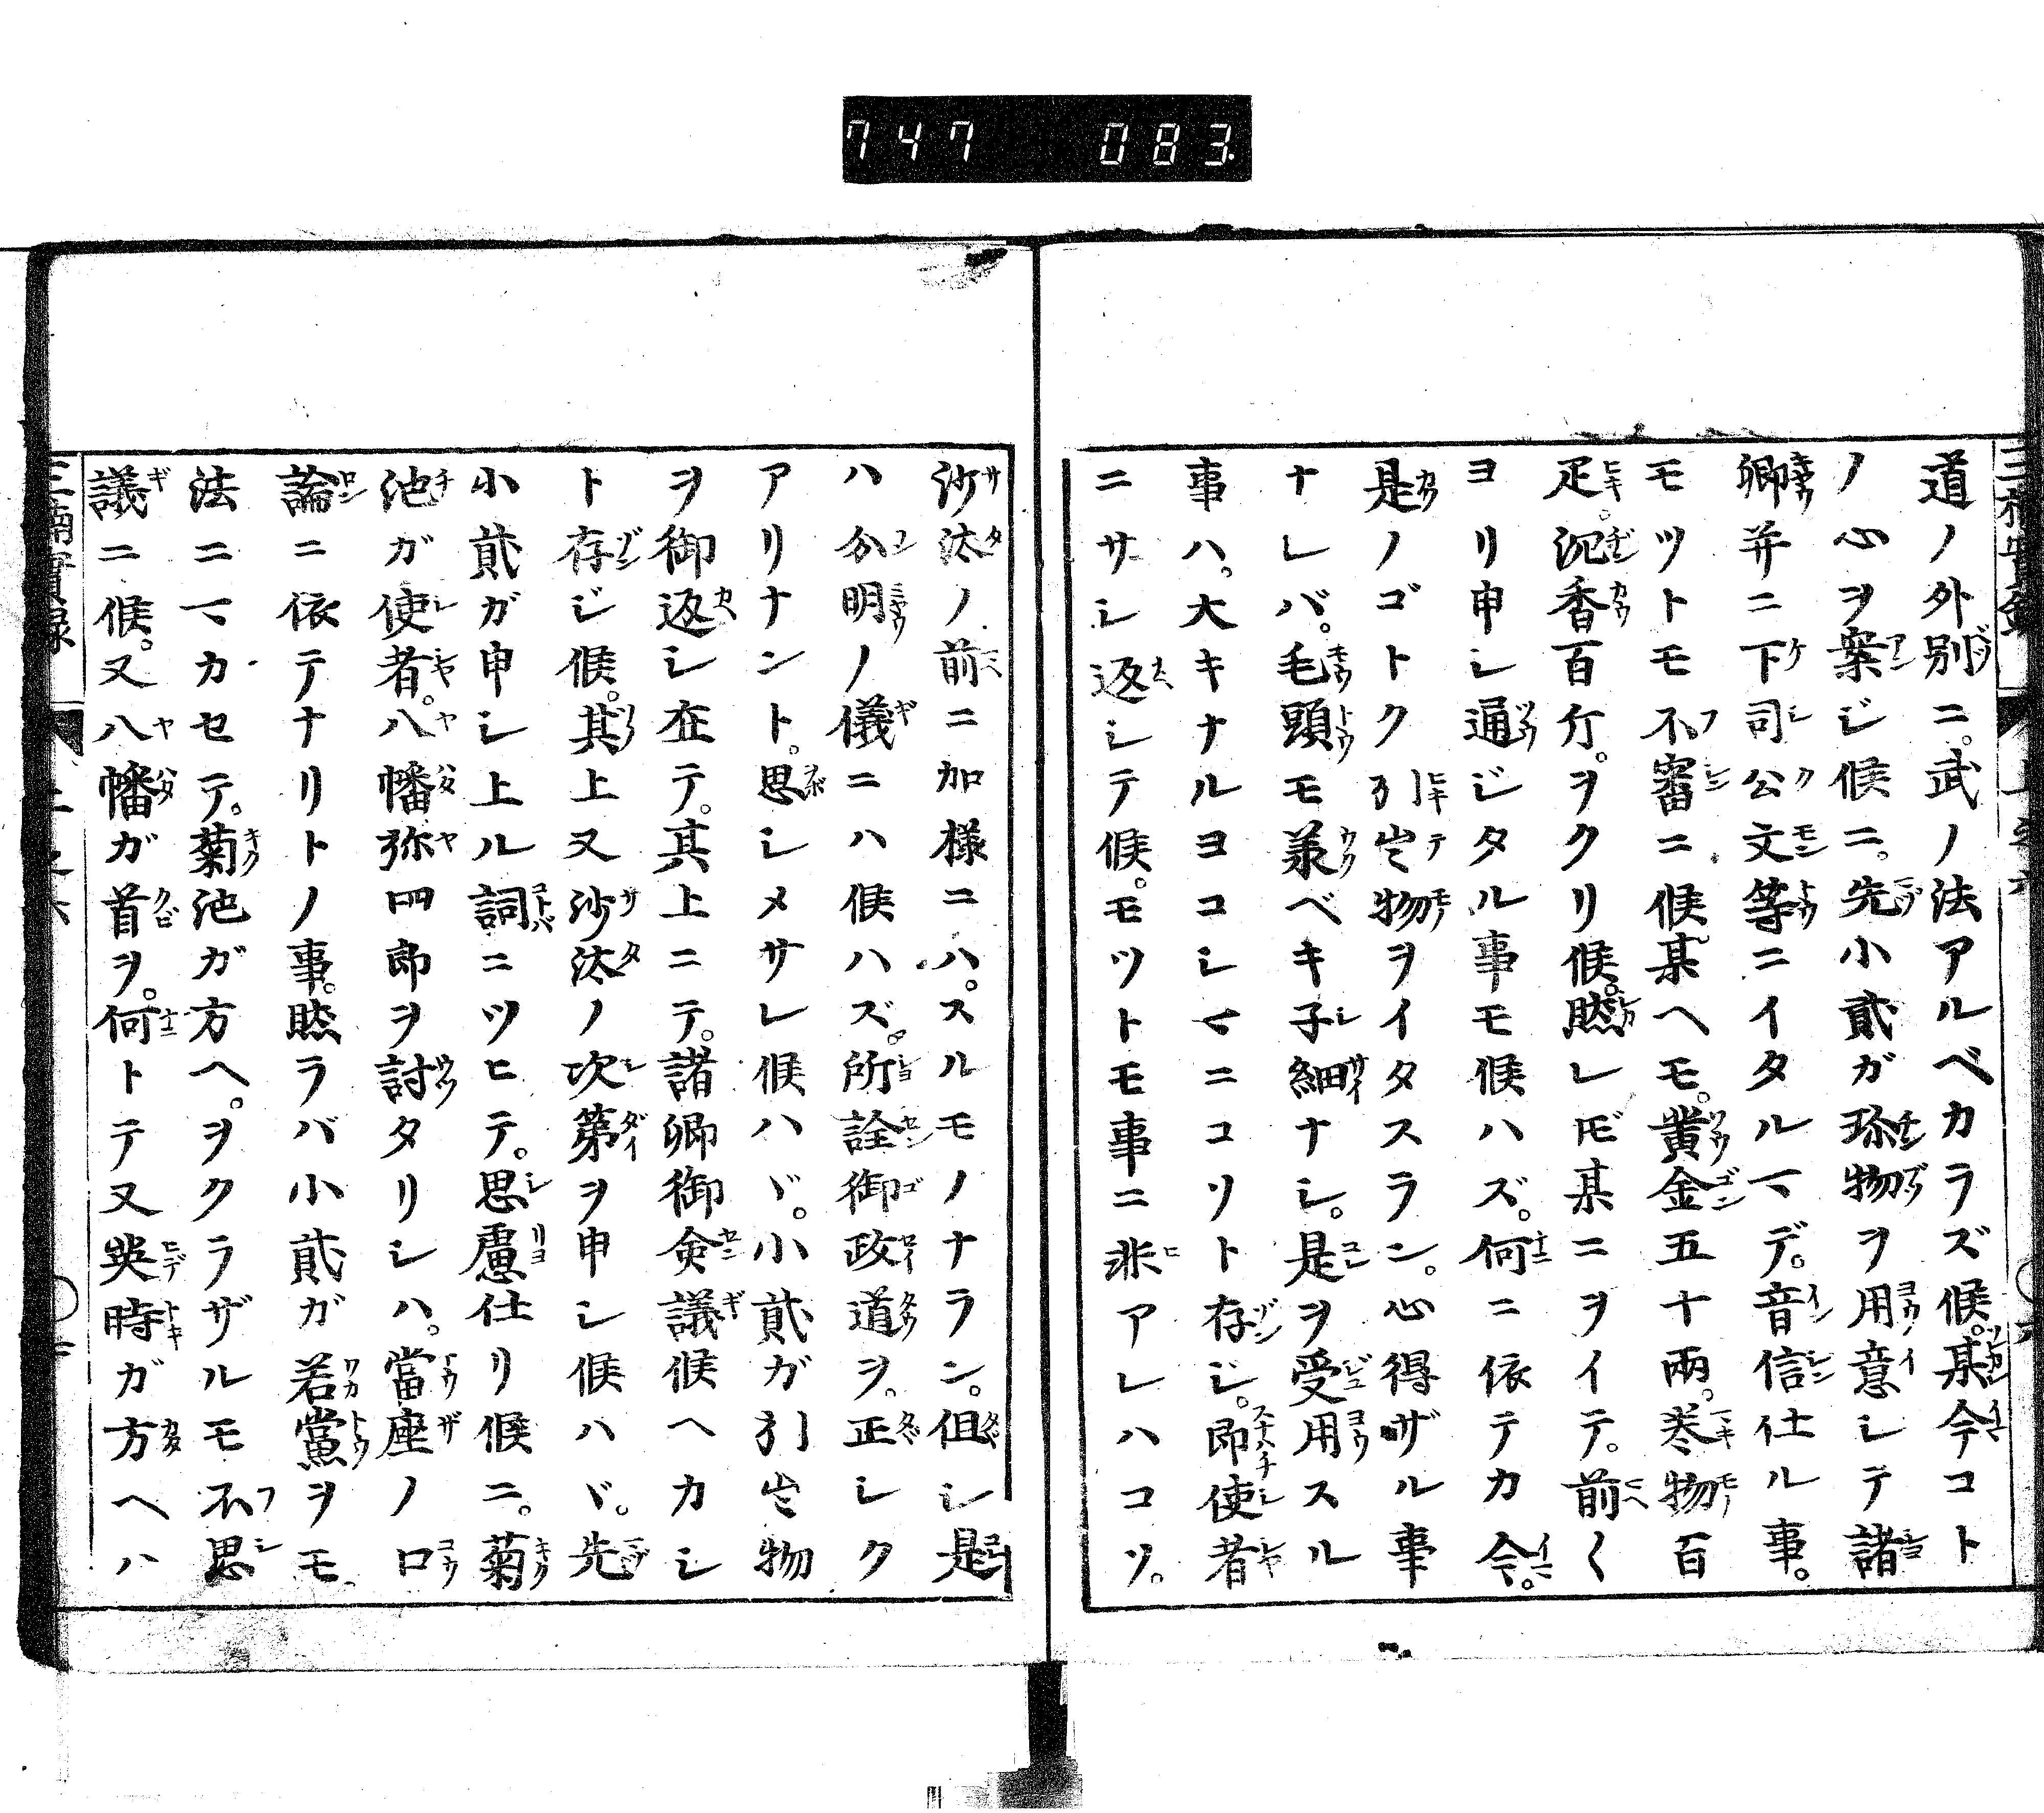 747 083
道ノ外別ニ。武ノ法アルベカラズ候。某今コト
ノ心ヲ案ジ候ニ。先小貳ガ珎物ヲ用意シテ諸
卿并ニ下司公文等ニイタルマデ。音信仕ル事。
モツトモ不審ニ候。某ヘモ。黄金五十兩。巻物百
疋。沉香百斤。ヲクリ候。然レ𪜈某ニヲイテ。前〱
ヨリ申シ通ジタル事モ候ハズ。何ニ依テカ今。
是ノゴトク引出物ヲイタスラン。心得ザル事
ナレバ。毛頭モ羕ベキ子細ナシ。是ヲ受用スル
事ハ。大キナルヨコシマニコソト存ジ。即使者
ニサシ返シテ候。モツトモ事ニ非アレハコソ。
沙汰ノ前ニ加様ニハ。スルモノナラン。但シ是
ハ分明ノ儀ニハ候ハズ。所詮御政道ヲ。正シク
アリナント。思シメサレ候ハヾ。小貳ガ引出物
ヲ御返シ在テ。其上ニテ。諸卿御僉議候ヘカシ
ト存ジ候。其上又沙汰ノ次第ヲ申シ候ハヾ。先
小貳ガ申シ上ル詞ニツヒテ。思慮仕リ候ニ。菊
池ガ使者。八幡弥四郎ヲ討タリシハ。當座ノ口
論ニ依テナリトノ事。然ラバ小貳ガ若黨ヲモ
法ニマカセテ。菊池ガ方ヘ。ヲクラザルモ不思
議ニ候。又八幡ガ首ヲ。何トテ又英時ガ方ヘハ